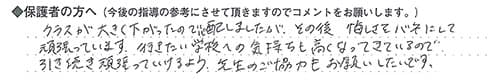 ◆保護者の方へ（今後の指導の参考にさせて頂きますのでコメントをお願いします。）
クラスが大きく下がったので心配しましたが、その後 悔しさをバネにして
頑張っています。行きたい学校への気持ちも高くなってきているので
引き続き頑張っていけるよう、先生のご協力もお願いしたいです。